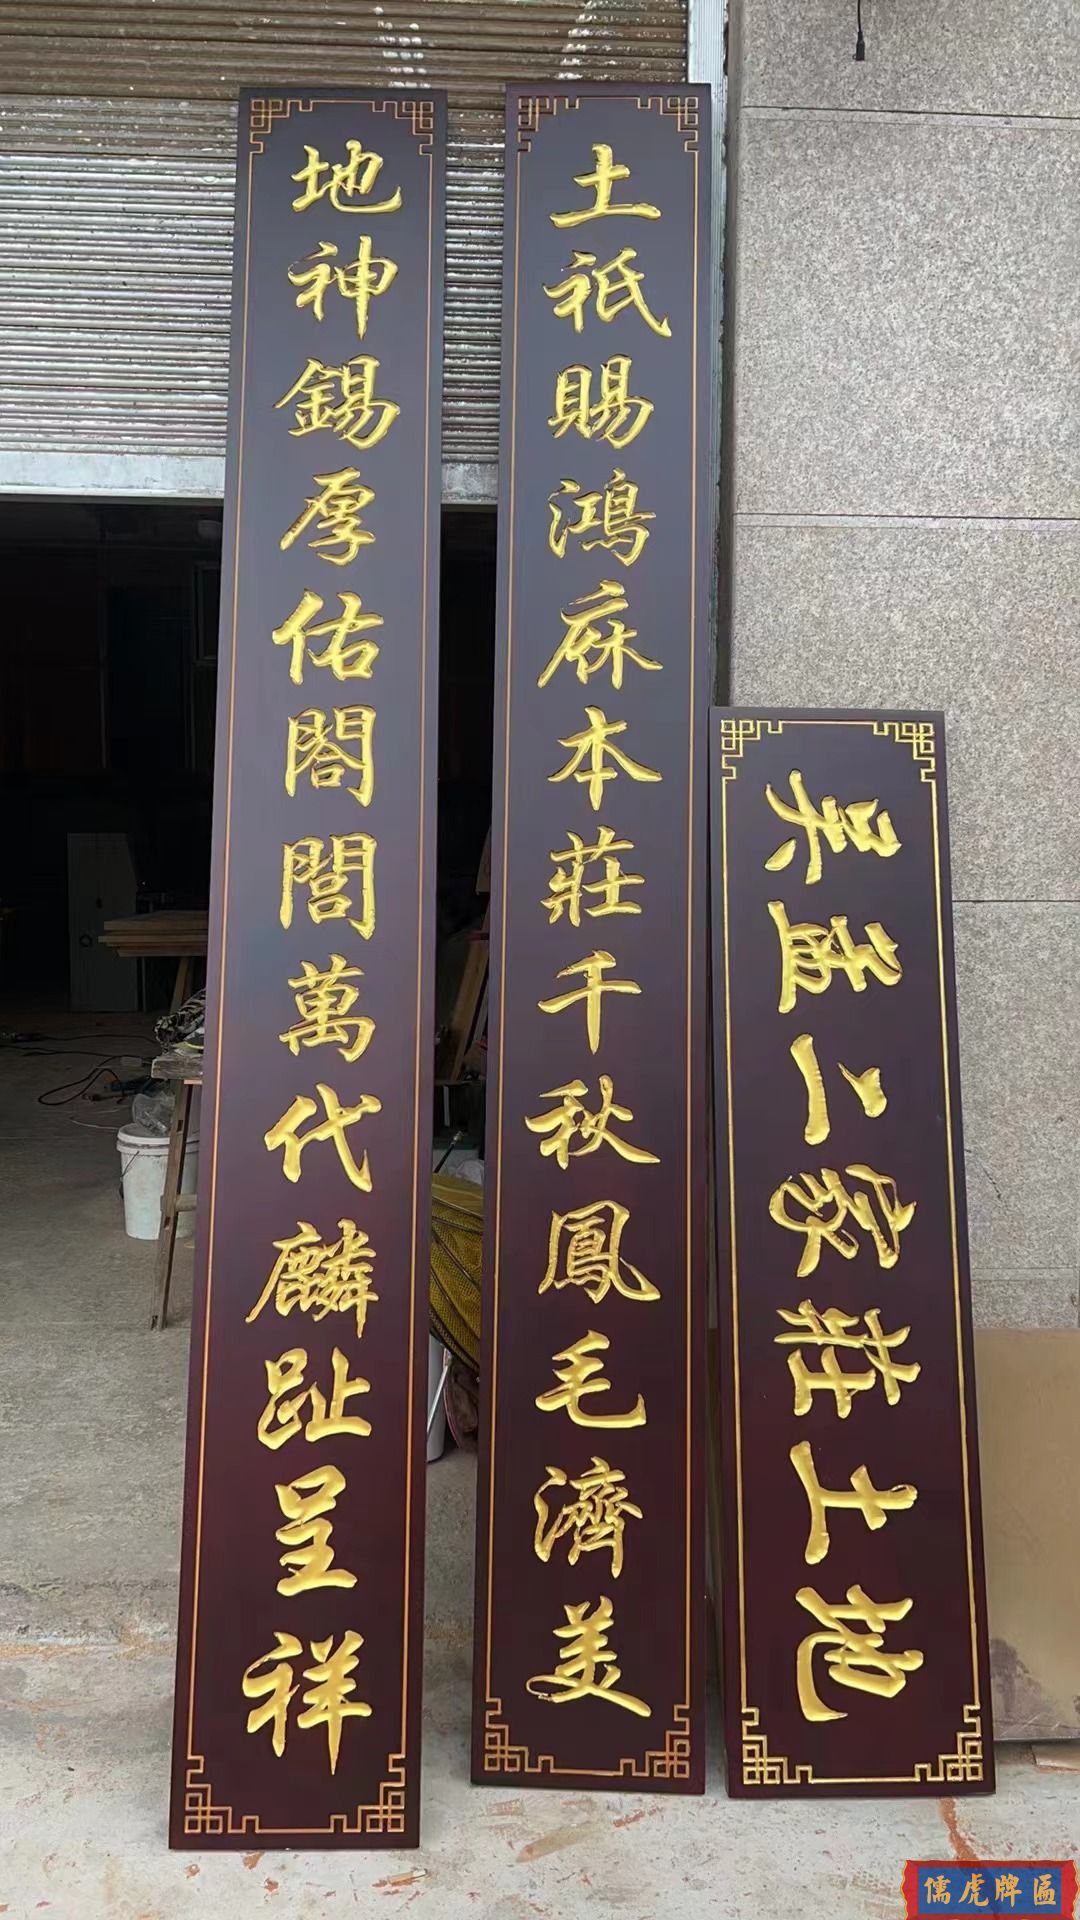 吴孟二家莊土地
土祇賜鴻庥本莊千秋鳳毛濟美
地神錫厚佑閤閭萬代麟趾呈祥
儒虎牌匾